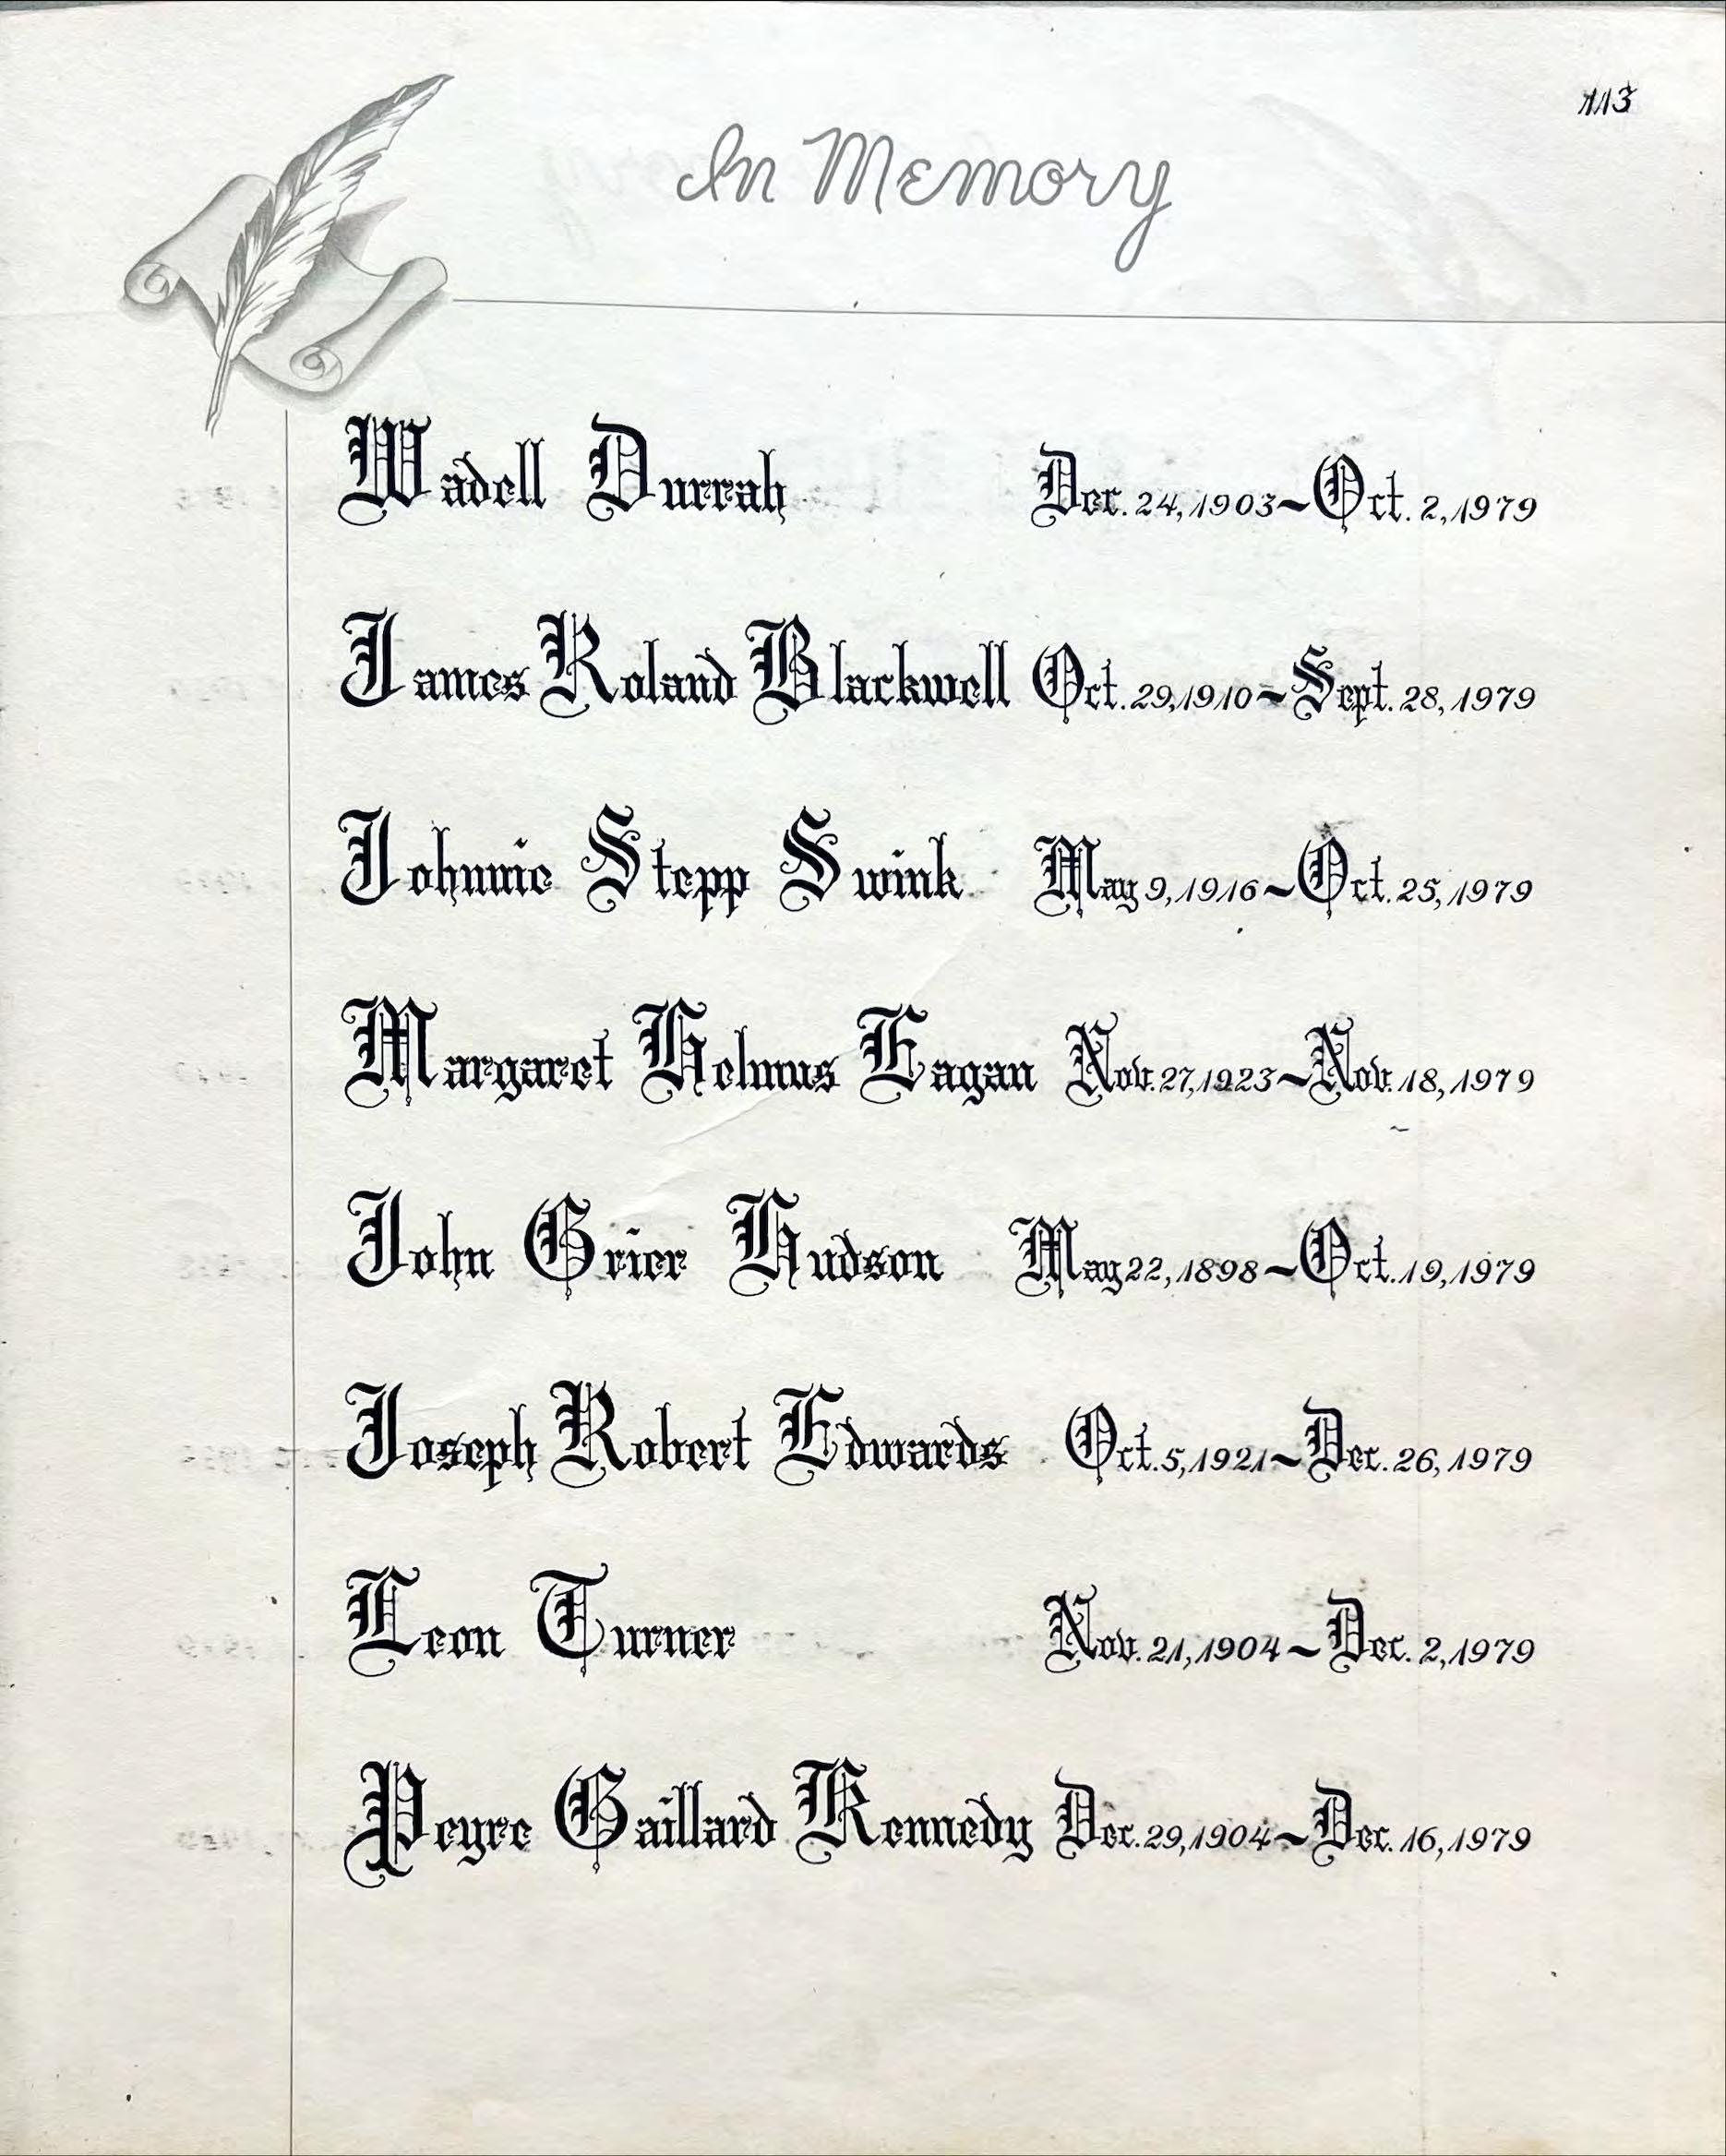 113
In Memory
Wadell Durrah Dec. 24, 1903~Oct. 2, 1979
James Roland Blackwell Oct. 29, 1910~Sept. 28, 1979
Johnnie Stepp Swink May 9, 1916~Oct. 25, 1979
Margaret Helmus Eagan Nov. 27, 1923~Nov. 18, 1979
John Grier Hudson May 22, 1898~Oct. 19, 1979
Joseph Robert Edwards Oct. 5, 1921~Dec. 26, 1979
Leon Turner Nov. 21, 1904~Dec. 2, 1979
Peyre Gaillard Kennedy Dec. 29, 1904~Dec. 16, 1979